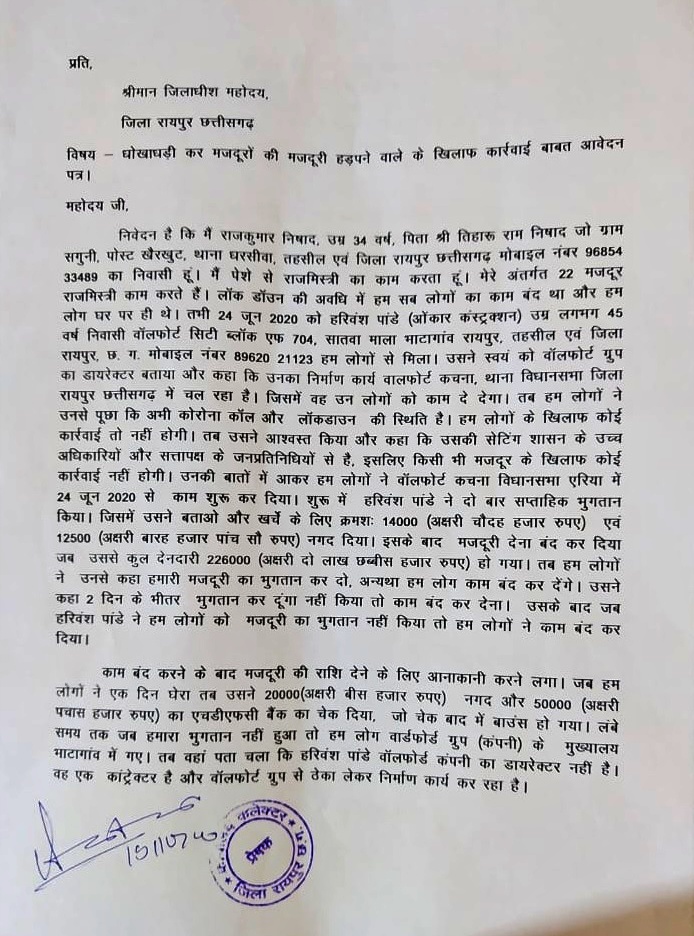 प्रति,
श्रीमान जिलाधीश महोदय,
जिला रायपुर छत्तीसगढ़
विषय – धोखाधड़ी कर मजदूरों की मजदूरी हड़पने वाले के खिलाफ कार्रवाई बाबत आवेदन
पत्र।
महोदय जी,
निवेदन है कि मैं राजकुमार निषाद, उम्र 34 वर्ष, पिता श्री तिहारू राम निषाद जो ग्राम
सगुनी, पोस्ट खैरखुट, थाना धरसीवा, तहसील एवं जिला रायपुर छत्तीसगढ़ मोबाइल नंबर 96854
33489 का निवासी हूं। मैं पेशे से राजमिस्त्री का काम करता हूं। मेरे अंतर्गत 22 मजदूर
राजमिस्त्री काम करते हैं। लॉक डॉउन की अवधि में हम सब लोगों का काम बंद था और हम
लोग घर पर ही थे। तभी 24 जून 2020 को हरिवंश पांडे (ओंकार कंस्ट्रक्शन) उम्र लगभग 45
वर्ष निवासी वॉलफोर्ट सिटी ब्लॉक एफ 704, सातवा माला भाटागांव रायपुर, तहसील एवं जिला
रायपुर, छ. ग. मोबाइल नंबर 89620 21123 हम लोगों से मिला। उसने स्वयं को वॉलफोर्ट ग्रुप
का डायरेक्टर बताया और कहा कि उनका निर्माण कार्य वालफोर्ट कचना, थाना विधानसभा जिला
रायपुर छत्तीसगढ़ में चल रहा है। जिसमें वह उन लोगों को काम दे देगा। तब हम लोगों ने
उनसे पूछा कि अभी कोरोना कॉल और लॉकडाउन की स्थिति है। हम लोगों के खिलाफ कोई
कार्रवाई तो नहीं होगी। तब उसने आश्वस्त किया और कहा कि उसकी सेटिंग शासन के उच्च
अधिकारियों और सत्तापक्ष के जनप्रतिनिधियों से है, इसलिए किसी भी मजदूर के खिलाफ कोई
कार्रवाई नहीं होगी। उनकी बातों में आकर हम लोगों ने वॉलफोर्ट कचना विधानसभा एरिया में
24 जून 2020 से काम शुरू कर दिया। शुरू में हरिवंश पांडे ने दो बार सप्ताहिक भुगतान
किया। जिसमें उसने बताओ और खर्चे के लिए क्रमशः 14000 (अक्षरी चौदह हजार रुपए) एवं
12500 (अक्षरी बारह हजार पांच सौ रुपए) नगद दिया। इसके बाद मजदूरी देना बंद कर दिया
जब उससे कुल देनदारी 226000 (अक्षरी दो लाख छब्बीस हजार रुपए) हो गया। तब हम लोगों
ने उनसे कहा हमारी मजदूरी का भुगतान कर दो, अन्यथा हम लोग काम बंद कर देंगे। उसने
कहा 2 दिन के भीतर भुगतान कर दूंगा नहीं किया तो काम बंद कर देना। उसके बाद जब
हरिवंश पांडे ने हम लोगों को मजदूरी का भुगतान नहीं किया तो हम लोगों ने काम बंद कर
दिया।
काम बंद करने के बाद मजदूरी की राशि देने के लिए आनाकानी करने लगा। जब हम
लोगों ने एक दिन घेरा तब उसने 20000(अक्षरी बीस हजार रुपए) नगद और 50000 (अक्षरी
पचास हजार रुपए) का एचडीएफसी बैंक का चेक दिया, जो चेक बाद में बाउंस हो गया। लंबे
समय तक जब हमारा भुगतान नहीं हुआ तो हम लोग वार्डफोर्ड ग्रुप (कंपनी) के मुख्यालय
भाटागांव में गए। तब वहां पता चला कि हरिवंश पांडे वॉलफोर्ड कंपनी का डायरेक्टर नहीं है।
वह एक कांट्रेक्टर है और वॉलफोर्ट ग्रुप से ठेका लेकर निर्माण कार्य कर रहा है।
कलेक्टर
प्रेषक
जिला रायपुर